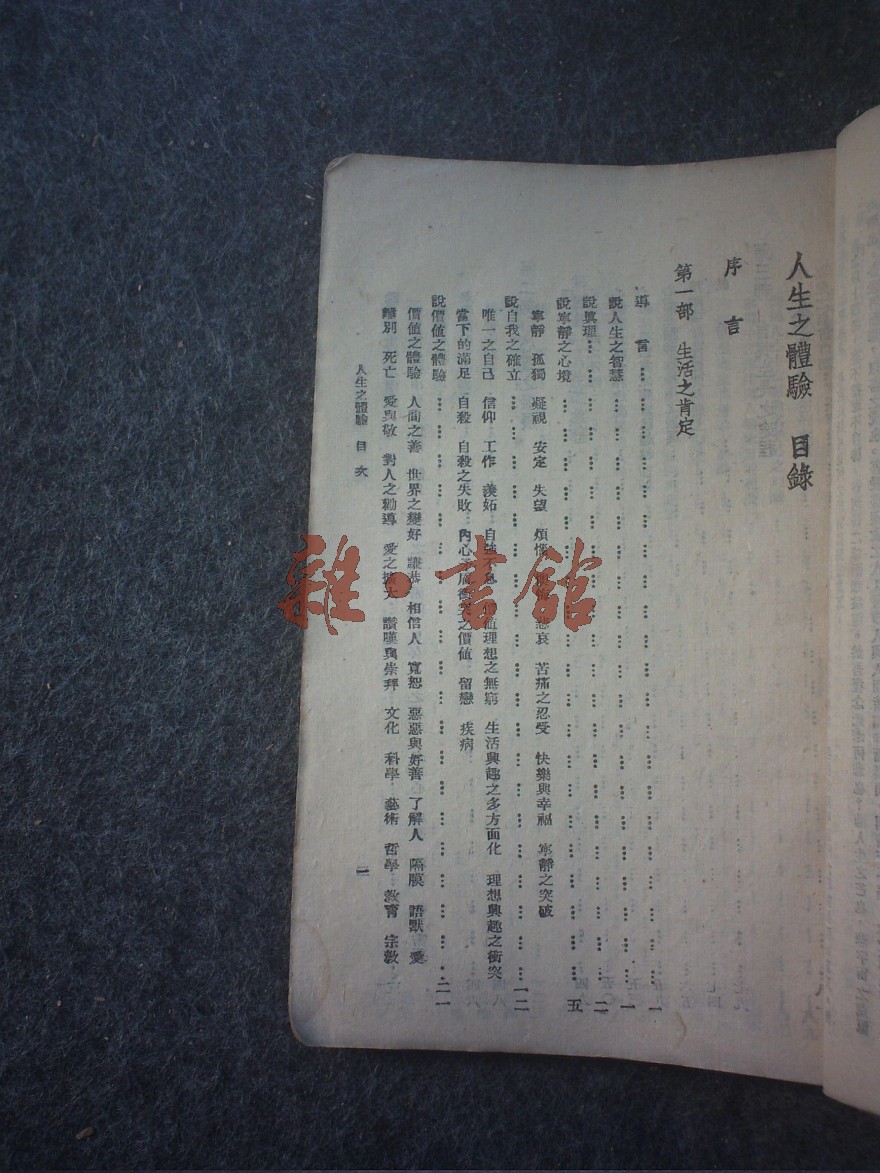 人生之體驗 目錄
序言
第一部 生活之肯定
導言……一
說人生之智慧……一
說眞理……二
說寧靜之心境……五
寧靜 孤獨 凝視 安定 失望 煩惱 悲哀 苦痛之忍受 快樂與幸福 寧靜之突破
說自我之確立……一二
唯一之自己 信仰 工作 羨妬 自強不息 價值理想之無窮 生活興趣之多方面化 理想興趣之衝突
當下的滿足 自殺 自殺之失敗 內心 之價值 留戀 疾病
說價值之體驗……二一
價值之體驗 人間之善 世界之變好 謙恭 相信人 寬恕 惡惡與好善 了解人 隔膜 語默 愛
離別 死亡 愛與敬 對人之勸導 愛之擴大 讚嘆與崇拜 文化 科學 藝術 哲學 教育 宗教
人生之體驗 目次
一
雜·書館